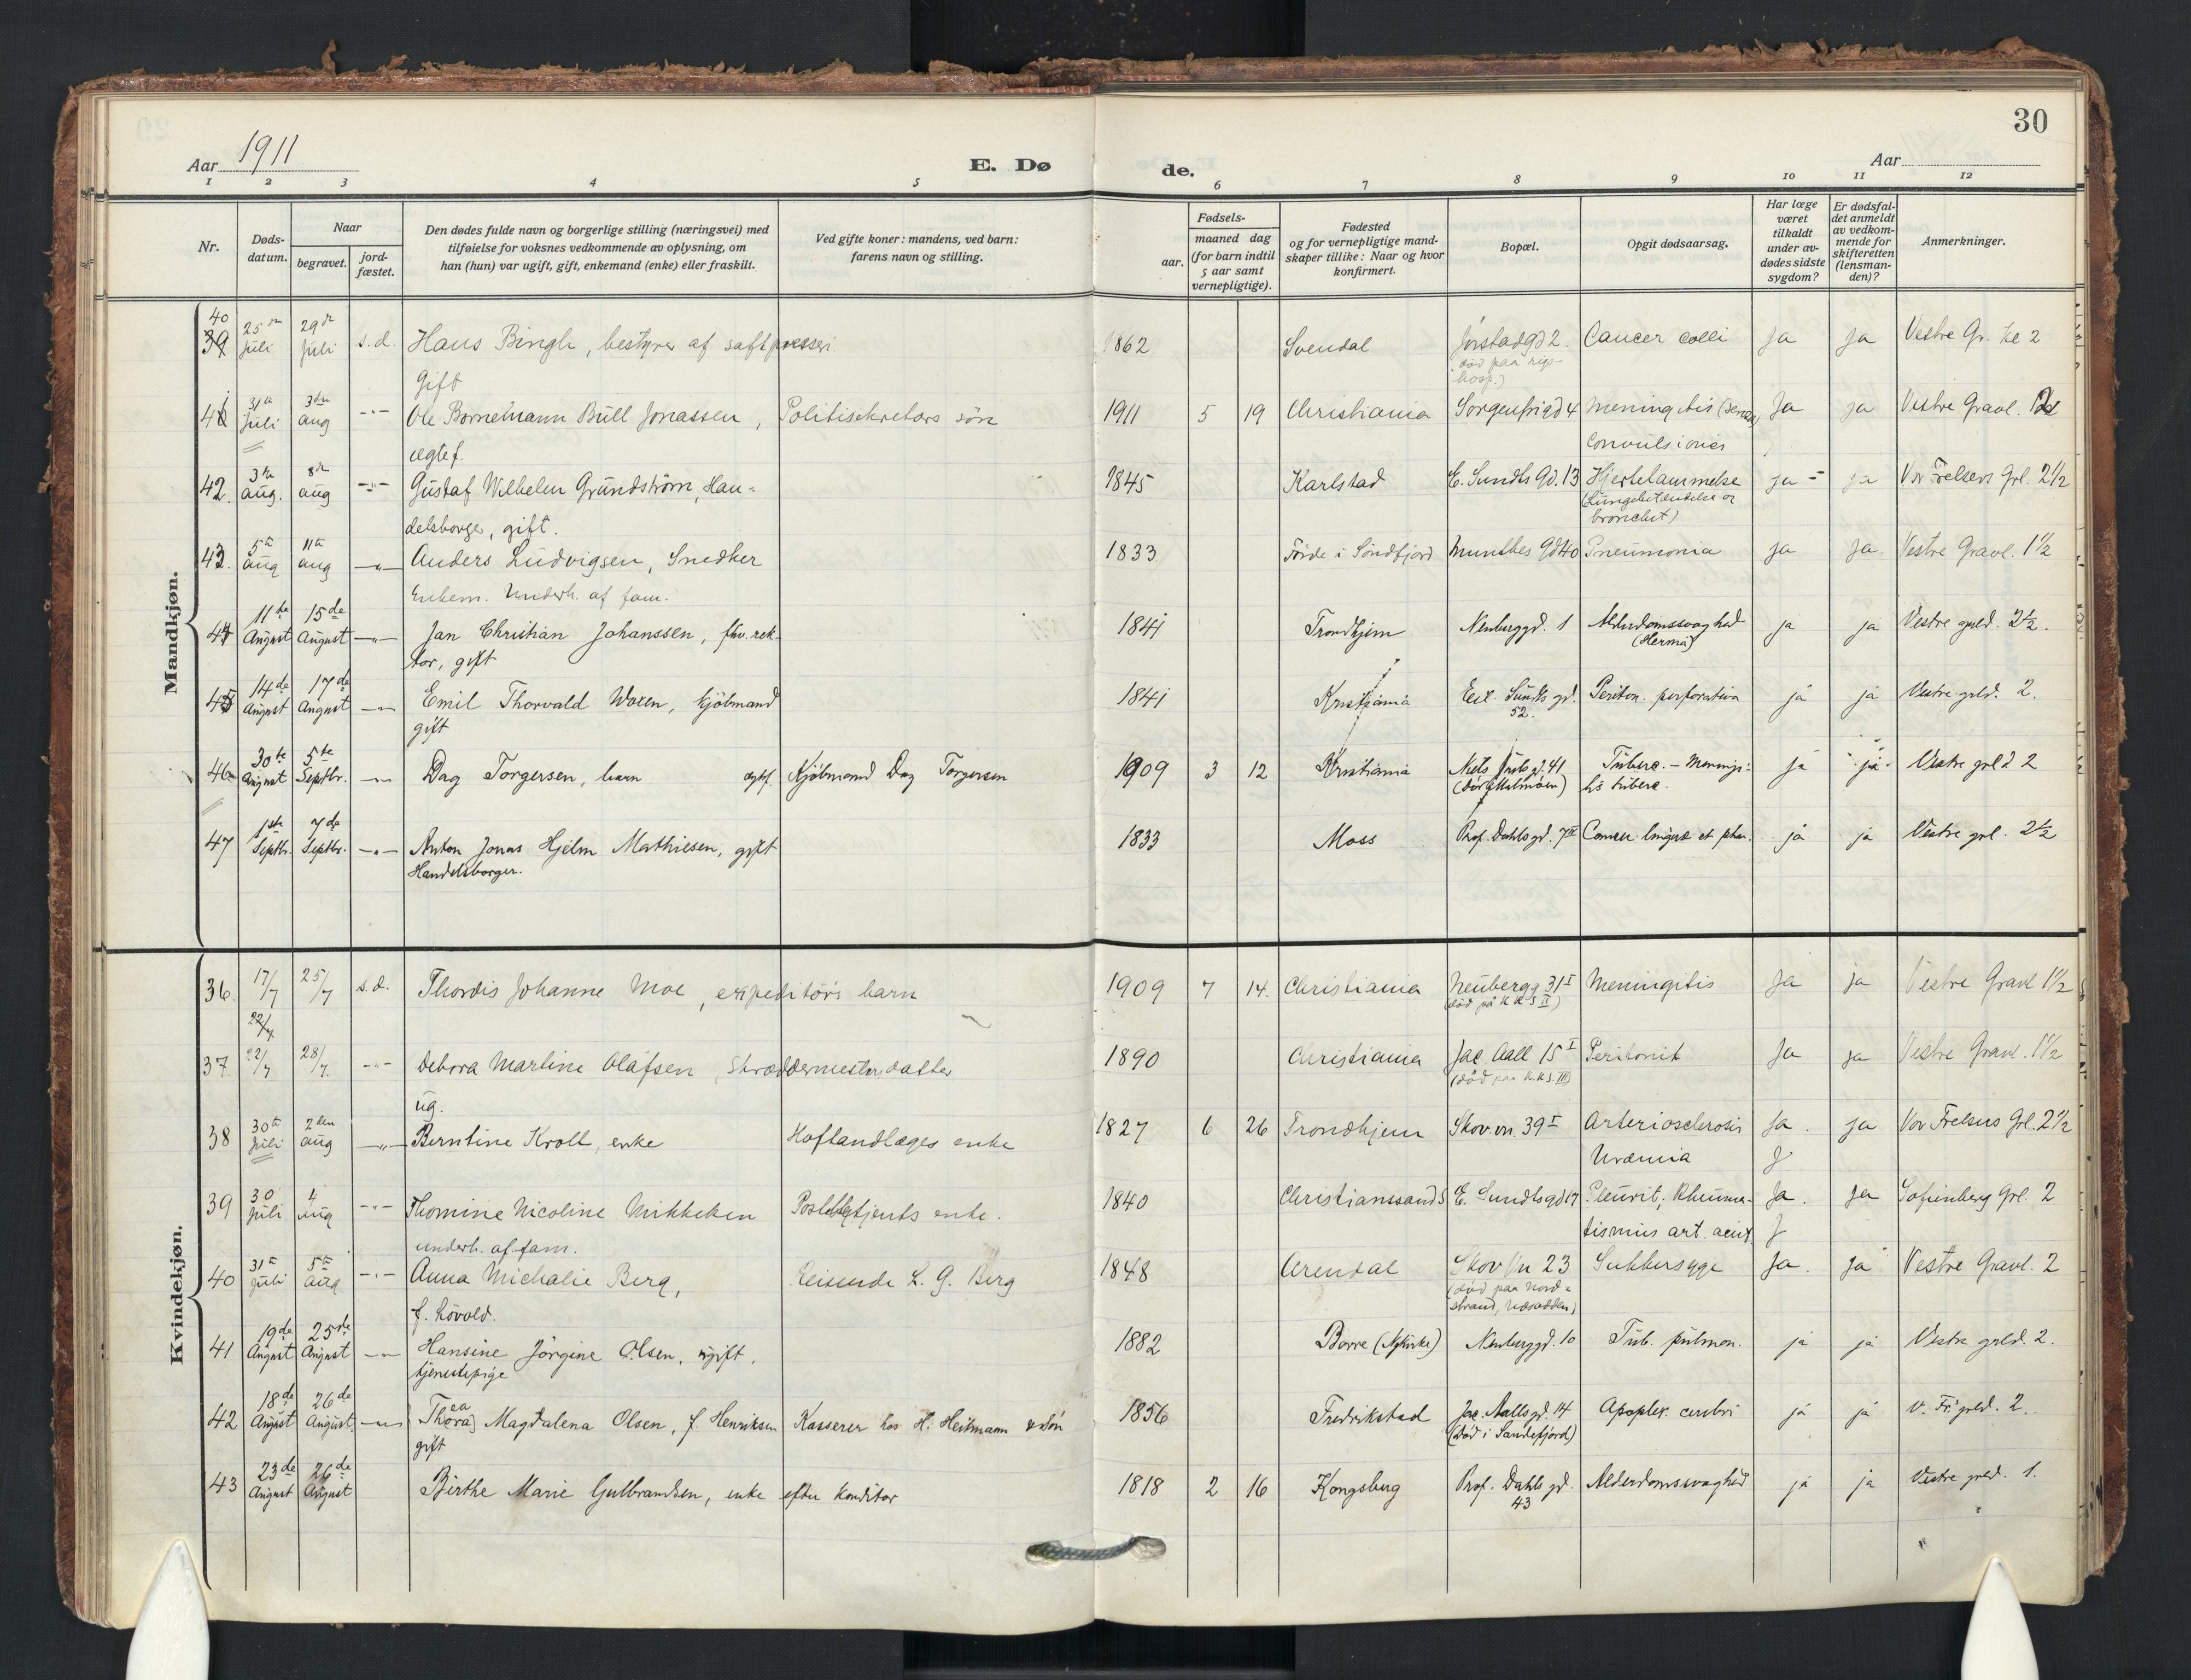 30
Aar 1911
E. Dø de.
Aar
1 2 3 4 5 6 7 8 9 10 11 12
Nr.
Døds-
datum.
Naar
begravet.
jord-
fæstet.
Den dødes fulde navn og borgerlige stilling (næringsvei) med
tilføielse for voksnes vedkommende av oplysning, om
han (hun) var ugift, gift, enkemand (enke) eller fraskilt.
Ved gifte koner: mandens, ved barn:
farens navn og stilling.
Fødsels-
aar.
maaned dag
(for barn indtil
5 aar samt
vernepligtige).
Fødested
og for vernepligtige mand-
skaper tillike: Naar og hvor
konfirmert.
Bopæl.
Opgit dødsaarsag.
Har læge
været
tilkaldt
under av-
dødes sidste
sygdom?
Er dødsfal-
det anmeldt
av vedkom-
mende for
skifteretten
(lensman-
den)?
Anmerkninger.
Mandkjøn.
40
39 25de Juli 29de Juli s.d. Hans Bingh, bestyrer af saftpresseri 1862 Svendal 2 Cancer colli Ja Ja Vestre Gr. 2
Gift
41 31te Juli 3die aug -"- Ole Bornemann Bull Jonassen, Politisekretærs søn 1911 5 19 Christiania Sorgenfrigd 4 Meningitis Ja ja Vestre Gravl.
ægtef. Convulsiones
42. 3die aug. 8de aug -"- Gustaf Wilhelm Grundström, Han- 1845 Karlstad E. Sundts Gd. 13 Hjertelammelse ja ja Vor Frelsers Grl. 2½
delsborger, gift. (Lungebetændelse og
bronchit)
43. 5te aug 11te aug -"- Anders Ludvigsen, Snedker 1833 Førde i Søndfjord Munthes Gd 40 Pneumonia Ja Ja Vestre Gravl. 1½
Enkem. Underh. af fam.
44 11te August 15de August -"- Jan Christian Johanssen, fhv. rek- 1841 Trondhjem Neuberggd. 1 Alderdomssvaghed ja ja Vestre gvld. 2½.
tor, gift
45 14de August 17de August -"- Emil Thorvald Woxen, kjöbmand 1841 Kristiania Eil. Sundts gd. Periton. perforativa ja ja Vestre gvld. 2.
gift 52.
46 30te August 5te Septbr. -"- Dag Torgersen, barn ægtf. Kjöbmand Dag Torgersen 1909 3 12 Kristiania Niels Juels gd. 41 Tuberc. - Mening- ja ja Vestre grld 2
tis tuberc.
47 1ste Septbr. 7de Septbr. -"- Anton Jonas Hjelm Mathiesen, gift 1833 Moss Prof. Dahls gd. 7III Cancer linguæ et phar. ja ja Vestre grl. 2½
Handelsborger.
Kvindekjøn.
36. 17/7 25/7 s.d. Thordis Johanne Moe, expeditörs barn 1909 7 14. Christiania Neubergg 31I Meningitis Ja ja Vestre Gravl 1½
(död på K K S II)
22/7
37. 22/7 28/7. -"- Debora Martine Olafsen, Skræddermester, datter 1890 Christiania Jac. Aall 15I Peritonit Ja ja Vestre Gravl. 1½
ug. (död paa K.K.S. III)
38 30te Juli 2den aug -"- Berntine Kroll, enke Hoflandlæges enke 1827 6 26 Trondhjem Skov.vn. 39I Arteriosclerosis Ja. ja Vor Frelsers Grl. 2½
Uræmia J
39 30 Juli 4 aug -"- Thomine Nicoline Mikkelsen enke. 1840 Christianssand S E. Sundtsgd 17 Pleurit; Rheuma- Ja. Ja Sofienberg Grl. 2
underh. af fam. tismus art. acut. J
40 31te Juli 5te aug -"- Anna Michalie Berg, Reisende L. G. Berg 1848 Arendal Skov Vn 23 Sukkersyge Ja. Ja Vestre Gravl. 2
f. Lövold. (död paa Nord-
strand, Næsodden)
41 19de August 25de August -"- Hansine Jörgine Olsen, ugift, 1882 Borre (Nykirke) Neuberggd. 10 Tub. pulmon. ja ja Vestre gvld. 2.
tjenestepige
42 18de August 26de August -"- Thora ea Magdalena Olsen, f. Henriksen Kasserer hos H. Heitmann & Sön 1856 Fredrikstad Jac. Aalls gd. 14 Apoplex. cerebri ja ja V. Fr. gvld. 2.
gift (död i Sandefjord)
43 23de August 26de August Birthe Marie Gulbrandsen, enke efter Konditor 1818 2 16 Kongsberg Prof. Dahls gd. Alderdomssvaghed ja ja Vestre gvld. 1.
43